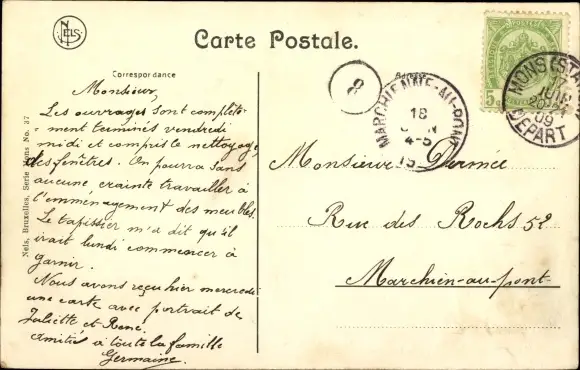 NELS
Carte Postale.
Correspondance
Adresse
Monsieur,
Les ouvrages sont complète-
ment terminés vendredi
midi et compris le nettoyage
des fenêtres. On pourra sans
aucune crainte travailler à
l'emménagement des meubles.
Le tapissier m'a dit qu'il
irait lundi commencer à
garnir.
Nous avons reçu hier mercredi
une carte avec portrait de
Juliette et René.
Amitiés à toute la famille
Germaine.
Nels, Bruxelles, Serie Mons No. 37
8
MARCHIENNE-AU-PONT
18
4-5
MONS (STA
09
DEPART
5
Monsieur Dermée
Rue des Rochs 52
Marchien-au-pont